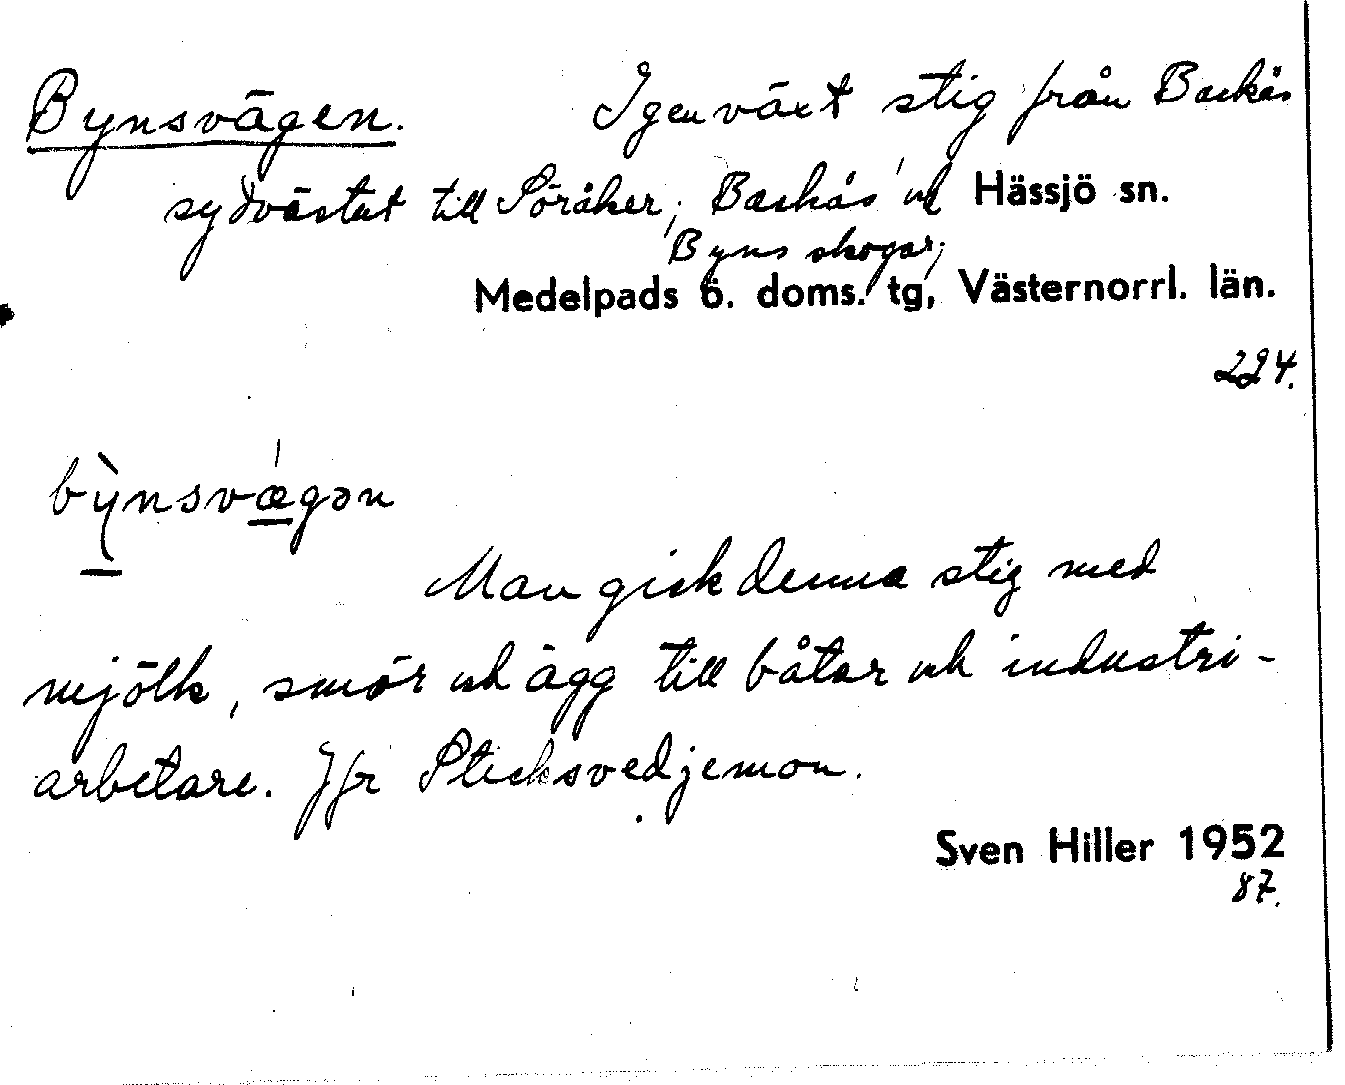 Bynsvägen. Igenväxt stig från Backås
sydvästut till Söråker; Backås och Hässjö sn.
Byns skogar;
Medelpads ö. doms. tg, Västernorrl. län.
224.
bỳnsvǽgən
Man gick denna stig med
mjölk, smör och ägg till båtar och industri-
arbetare. Jfr Sticksvedjemon.
Sven Hiller 1952
87.